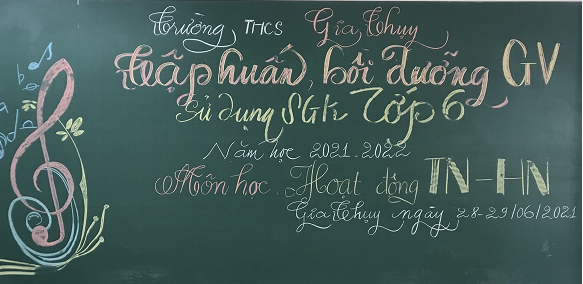 Trường THCS Gia Thụy
Tập huấn, bồi dưỡng GV
sử dụng SGK Lớp 6
Năm học 2021.2022
Môn học. Hoạt động TN-HN
Gia Thụy ngày 28-29/06/2021